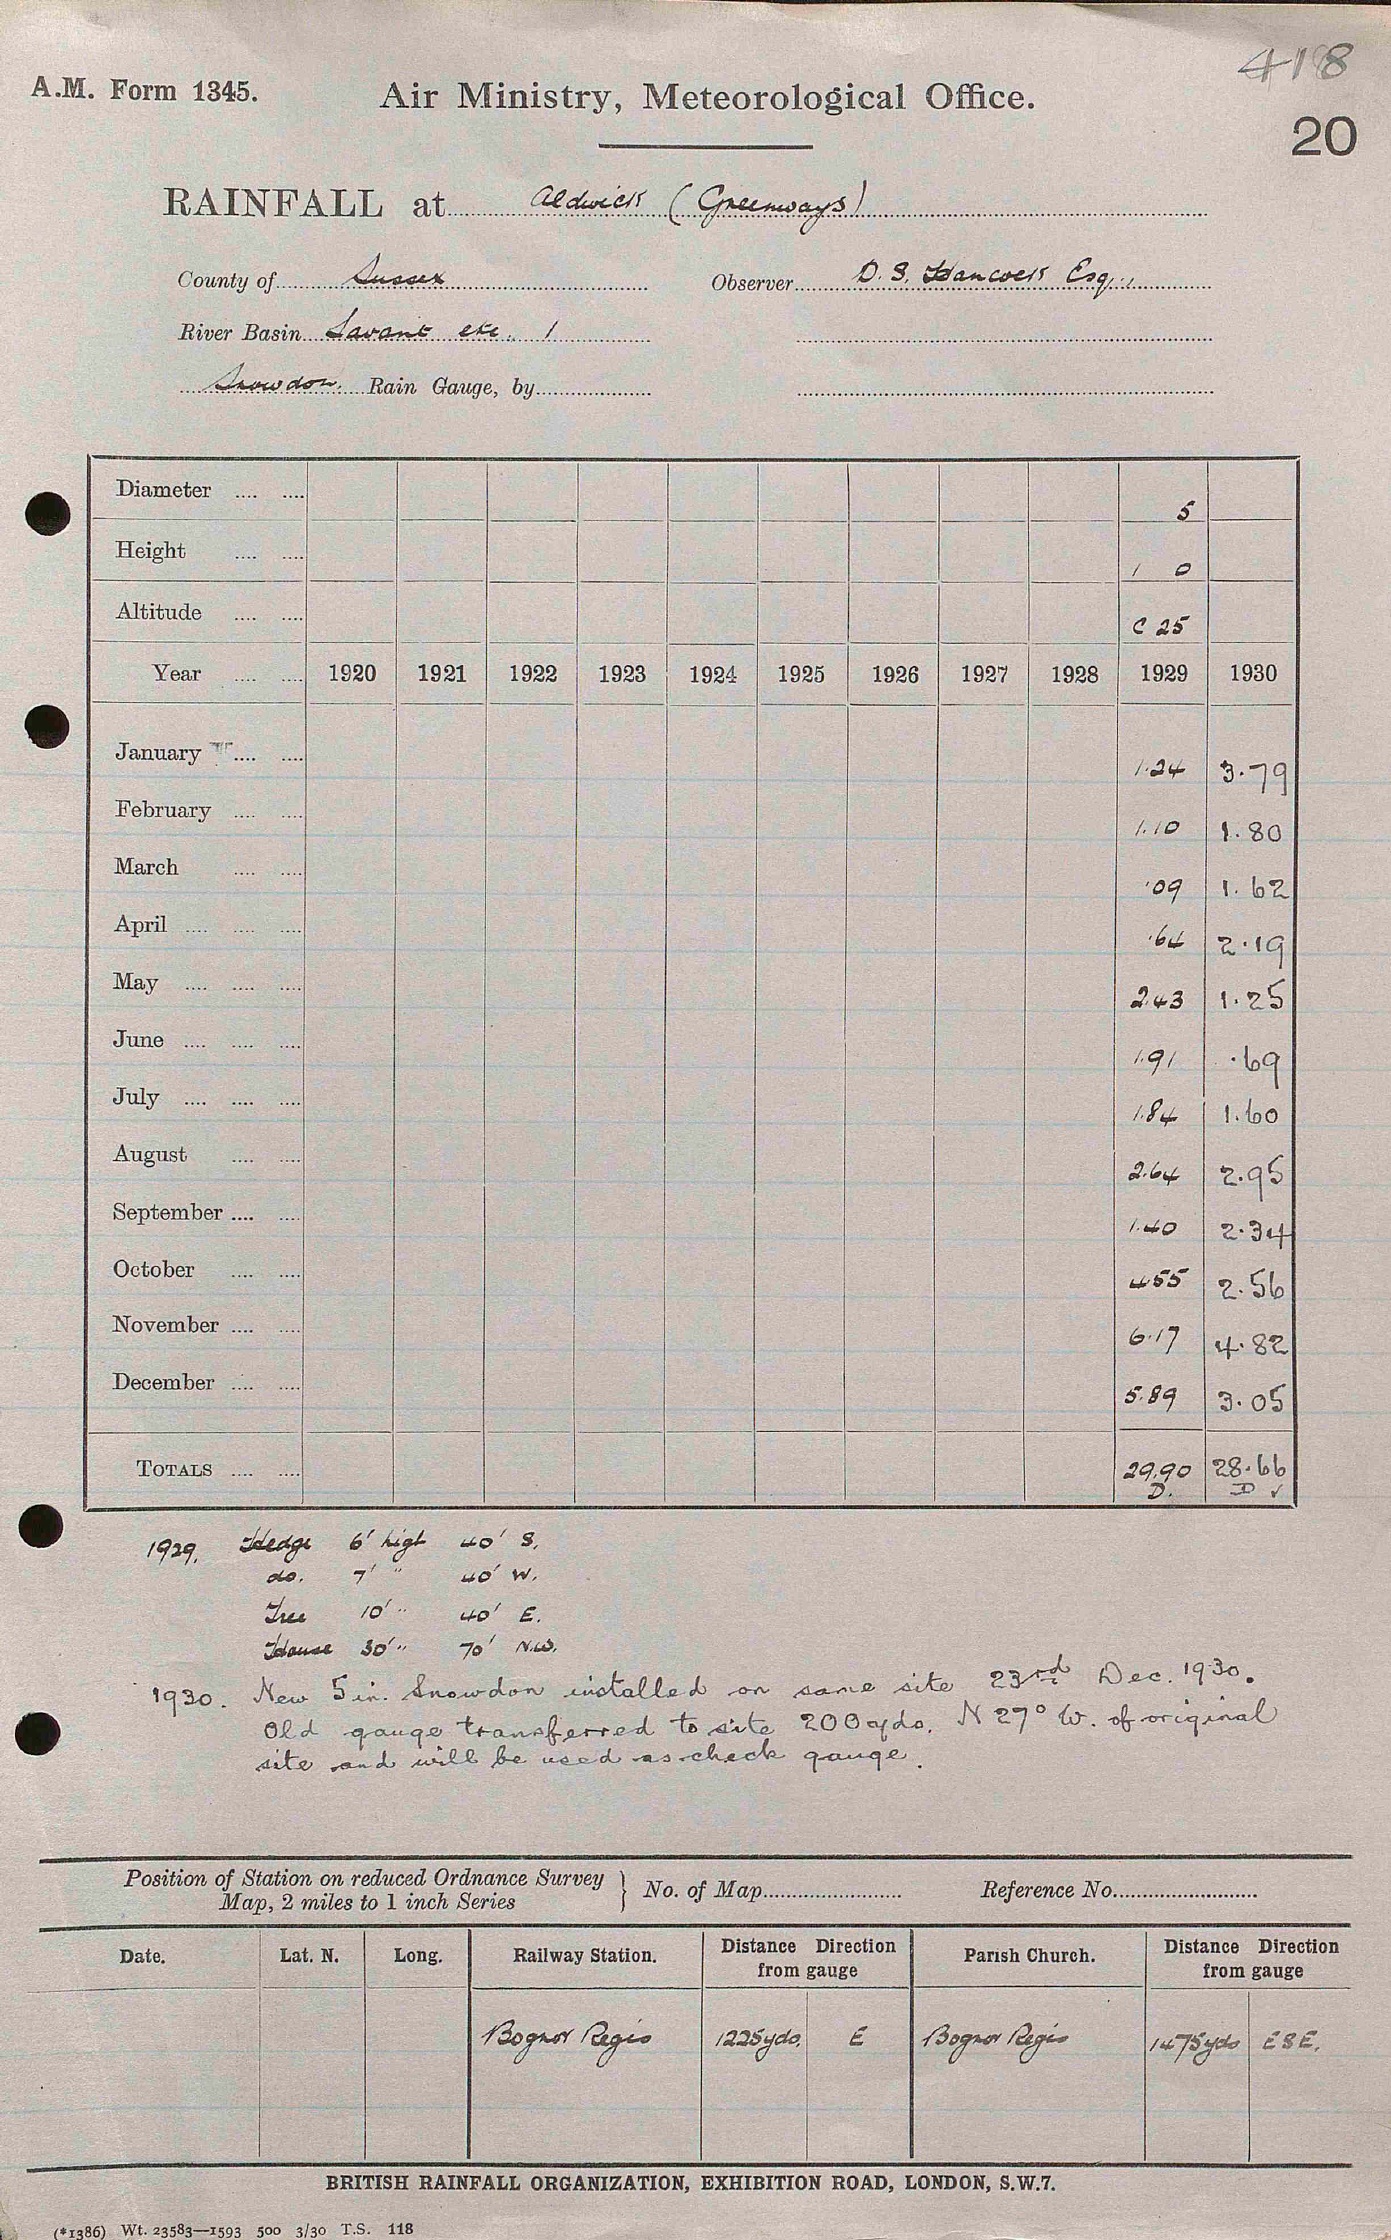 418
A.M. Form 1345.
Air Ministry, Meteorological Office.
20
RAINFALL at Aldwick (Greenways)
County of Sussex Observer D. S. Hancock Esq.,
River Basin Lavant etc. 1
Snowdon. Rain Gauge, by
Diameter .... .... 5
Height .... .... 1 0
Altitude .... .... C 25
Year .... .... 1920 1921 1922 1923 1924 1925 1926 1927 1928 1929 1930
January .... .... 1.24 3.79
February .... .... 1.10 1.80
March .... .... .09 1.62
April .... .... .... .64 2.19
May .... .... .... 2.43 1.25
June .... .... .... 1.91 .69
July .... .... .... 1.84 1.60
August .... .... 2.64 2.95
September .... .... 1.40 2.34
October .... .... 4.55 2.56
November .... .... 6.17 4.82
December .... .... 5.89 3.05
TOTALS .... .... 29.90 28.66
D. D ✓
1929. Hedge 6' high 40' S.
do. 7' " 40' W.
Tree 10' " 40' E.
House 30' " 70' N.W.
1930. New 5 in. Snowdon installed on same site 23rd Dec. 1930.
Old gauge transferred to site 200 yds. N 27° W. of original
site and will be used as check gauge.
Position of Station on reduced Ordnance Survey
Map, 2 miles to 1 inch Series } No. of Map Reference No.
Date. Lat. N. Long. Railway Station. Distance Direction from gauge Parish Church. Distance Direction from gauge
Bognor Regis 1225 yds. E Bognor Regis 1475 yds E S E.
BRITISH RAINFALL ORGANIZATION, EXHIBITION ROAD, LONDON, S.W.7.
(*1386) Wt. 23583—1593 500 3/30 T.S. 118